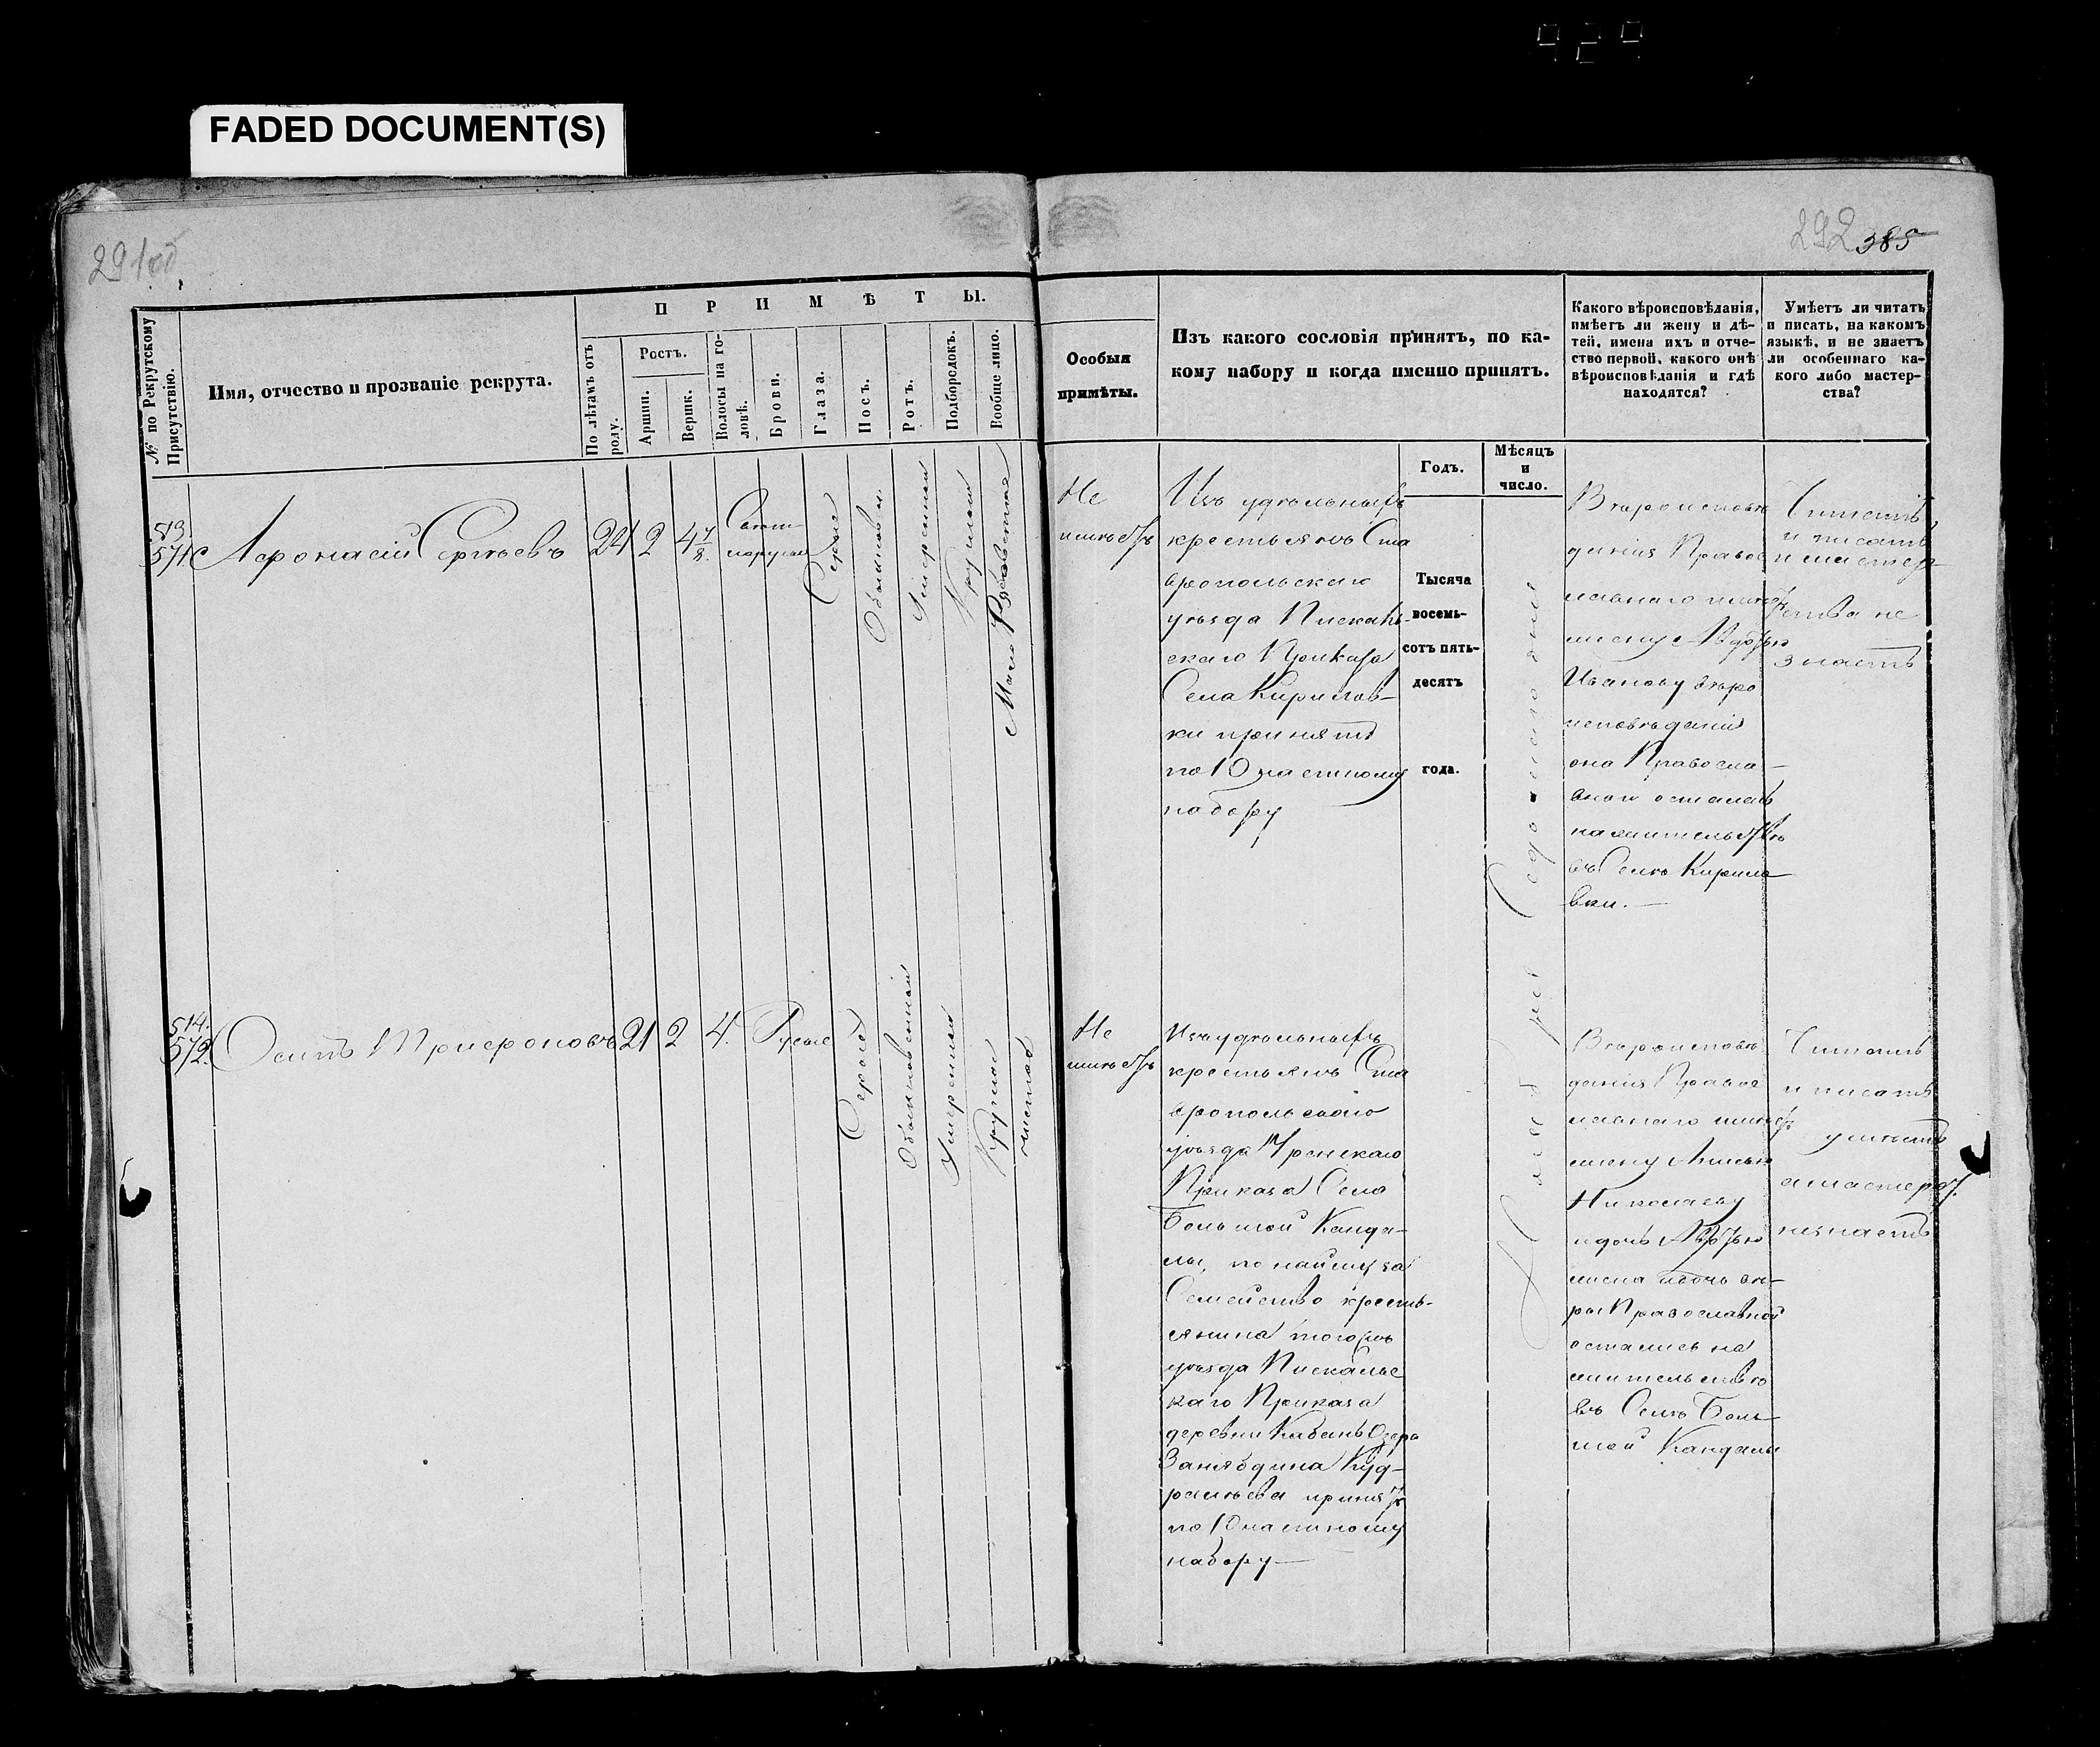 FADED DOCUMENT(S)
291об
292 385
№ по Рекрутскому Присутствію.
Имя, отчество и прозваніе рекрута.
ПРИМѢТЫ.
По лѣтамъ отъ роду.
Ростъ.
Аршин.
Вершк.
Волосы на головѣ.
Брови.
Глаза.
Носъ.
Ротъ.
Подбородокъ.
Вообще лицо.
Особыя
примѣты.
Изъ какого сословія принятъ, по ка-
кому набору и когда именно принятъ.
Годъ.
Мѣсяцъ
и
число.
Какого вѣроисповѣданія,
имѣетъ ли жену и дѣ-
тей, имена ихъ и отче-
ство первой, какого онѣ
вѣроисповѣданія и гдѣ
находятся?
Умѣетъ ли читать
и писать, на какомъ
языкѣ, и не знаетъ
ли особеннаго ка-
кого либо мастер-
ства?
513.
571.
Афонасій Сергѣевъ
24 2 4 1/8.
Свѣтло
русые
Серые
Обыкновен.
Умеренный
Круглый
Мало Рябоватое
Не
имѣетъ
Изъ удѣльныхъ
крестьянъ Ста
вропольскаго
уѣзда Пискаль-
скаго Приказа
Села Кирилов-
ки принятъ
по 10 частному
набору
Тысяча
восемь-
сотъ пять-
десятъ
года.
Вѣроисповѣ
данія Правос
лавнаго имѣетъ
жену Авдотью
Иванову вѣро
исповѣданія
она Правосла-
внаго осталась
на жительствѣ
въ Селѣ Кирило
вки.
Читать
и писать
и мастер
ства не
знаетъ
514.
572.
Осипъ Трифоновъ
21 2 4.
Русые
Серые
Обыкновенный
Умеренный
Круглый
чистое
Не
имѣетъ
Изъ удѣльныхъ
крестьянъ Ста
вропольскаго
уѣзда
Приказа Села
Большой Канда-
лы, по найму за
Семейство кресть-
янина того жъ
уѣзда Пискальс
каго Приказа
деревни Кабанъ Озера
Занябдина Куд-
ряшева принятъ
по 10 частному
набору
Вѣроисповѣ
данія Правос
лавнаго имѣетъ
жену
Николаеву
и дочь Авдотью
жена и дочь вѣ-
ры Православной
остались на
жительствѣ
въ Селѣ Боль-
шой Кандалы
Читать
и писать
умѣетъ
а мастерст.
незнаетъ